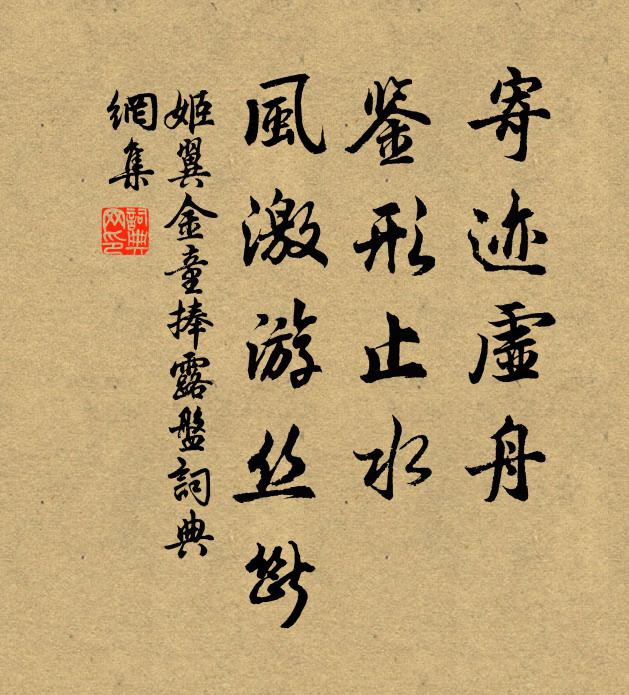 寄迹虛舟
鉴形止水
風激游丝斷
姬翼金童捧露盤詞典
網集
詞典
网印